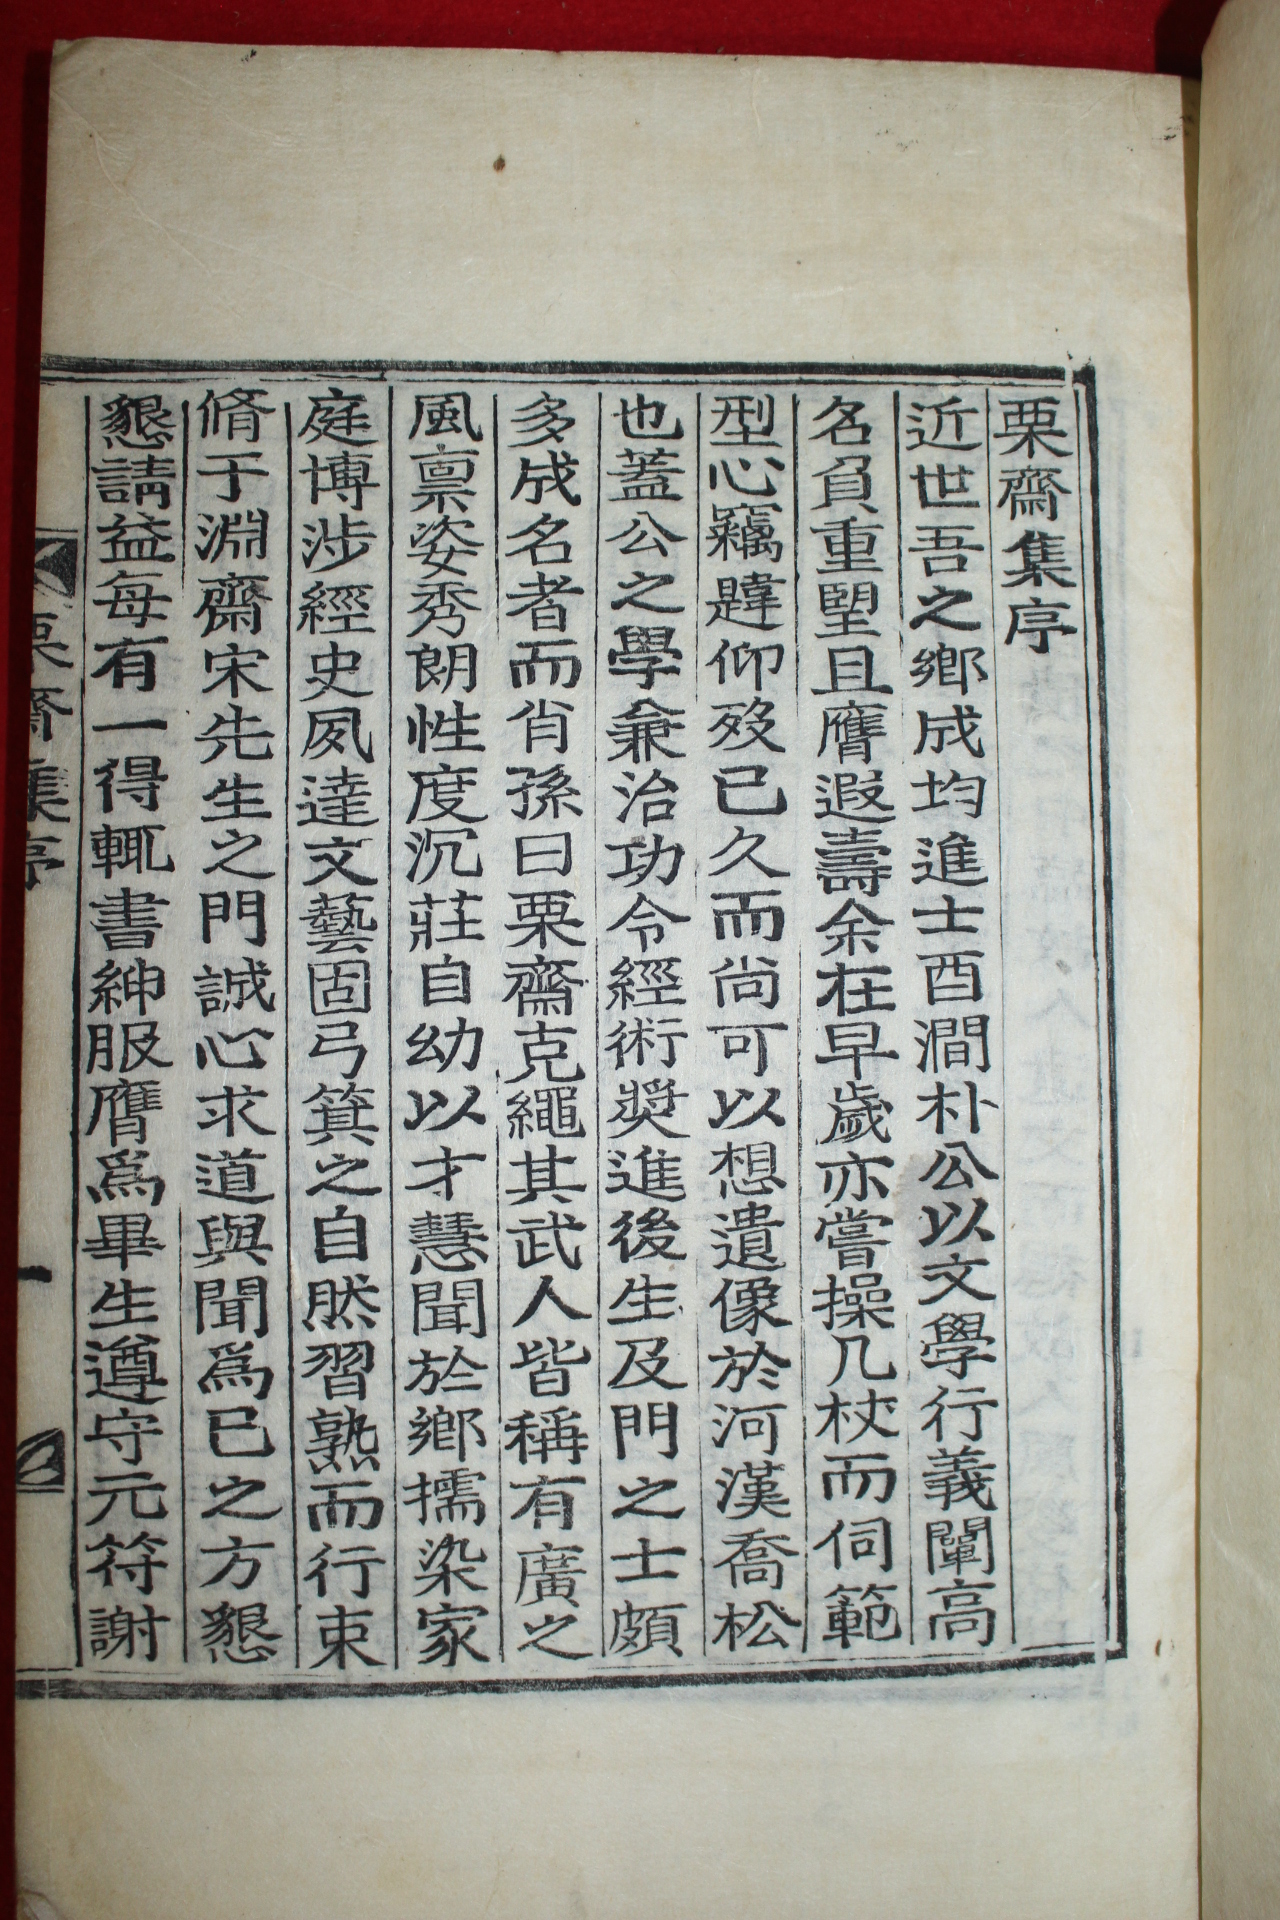 栗齋集序
近世吾之鄕成均進士酉澗朴公以文學行義闡高
名負重望且膺遐壽余在早歲亦嘗操几杖而伺範
型心竊韙仰歿已久而尚可以想遺像於河漢喬松
也蓋公之學兼治功令經術奬進後生及門之士頗
多成名者而肖孫曰栗齋克繩其武人皆稱有廣之
風禀姿秀朗性度沉莊自幼以才慧聞於鄕擩染家
庭博涉經史夙達文藝固弓箕之自然習熟而行束
脩于淵齋宋先生之門誠心求道與聞爲已之方懇
懇請益每有一得輒書紳服膺爲畢生遵守元符謝
栗齋集序 一